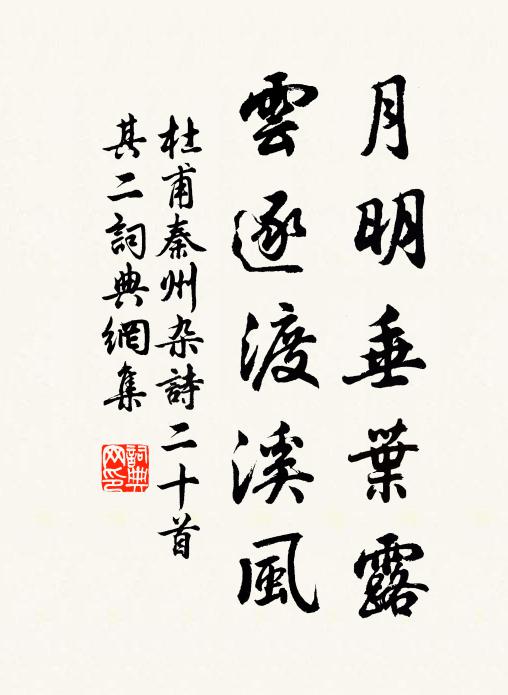 月明垂葉露
雲逐渡溪風
杜甫秦州杂詩二十首
其二詞典網集
詞典網印